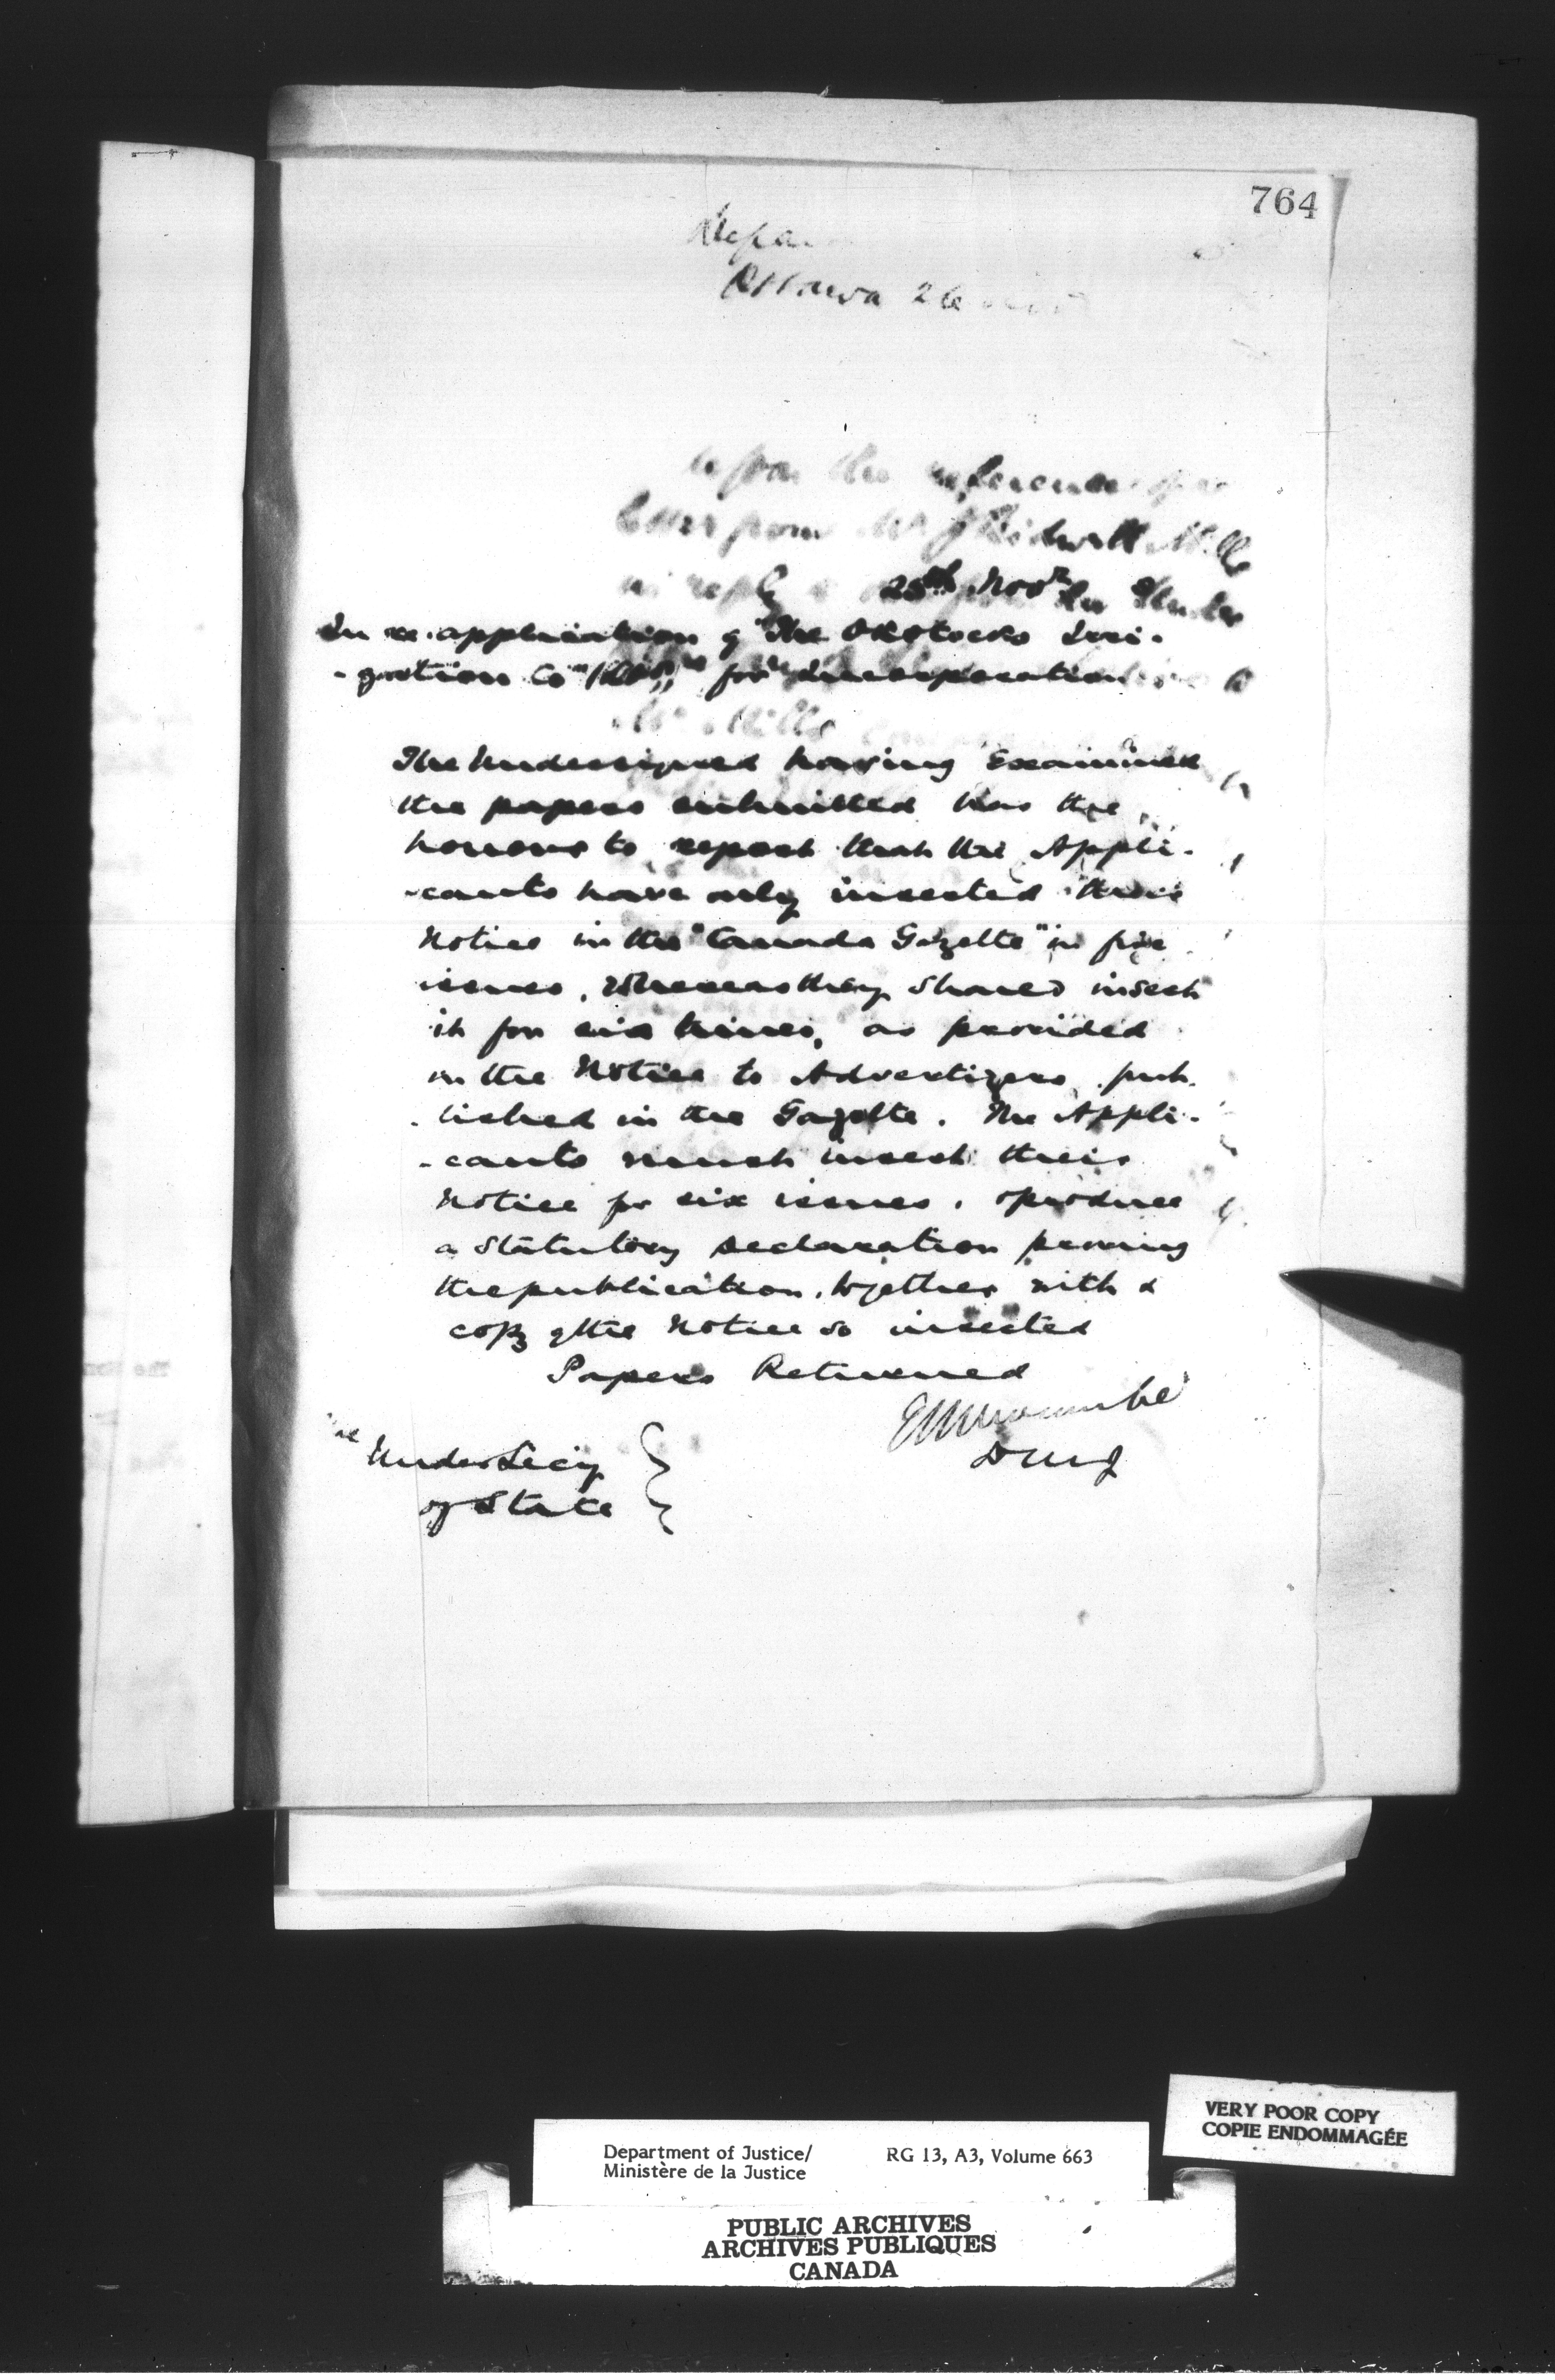 764
Ottawa 26
upon the reference
letter from Mr J Bidwell Mills
in reply 25th Novr
In re application of "The Okotoks Irri-
-gation Co" for Incorporation
Mr Mills
The Undersigned having Examined
the papers submitted has the
honour to report that the Appli-
-cants have only inserted their
Notice in the "Canada Gazette" in five
issues, Whereas they should insert
it for six times, as provided
in the Notice to Advertizers pub-
-lished in the Gazette. The Appli-
-cants must insert their
Notice for six issues, & produce
a Statutory declaration proving
the publication, together with a
copy of the Notice so inserted
Papers Returned
E L Newcombe
D M J
The
Under Secy
of State
VERY POOR COPY
COPIE ENDOMMAGÉE
Department of Justice/ RG 13, A3, Volume 663
Ministère de la Justice
PUBLIC ARCHIVES
ARCHIVES PUBLIQUES
CANADA